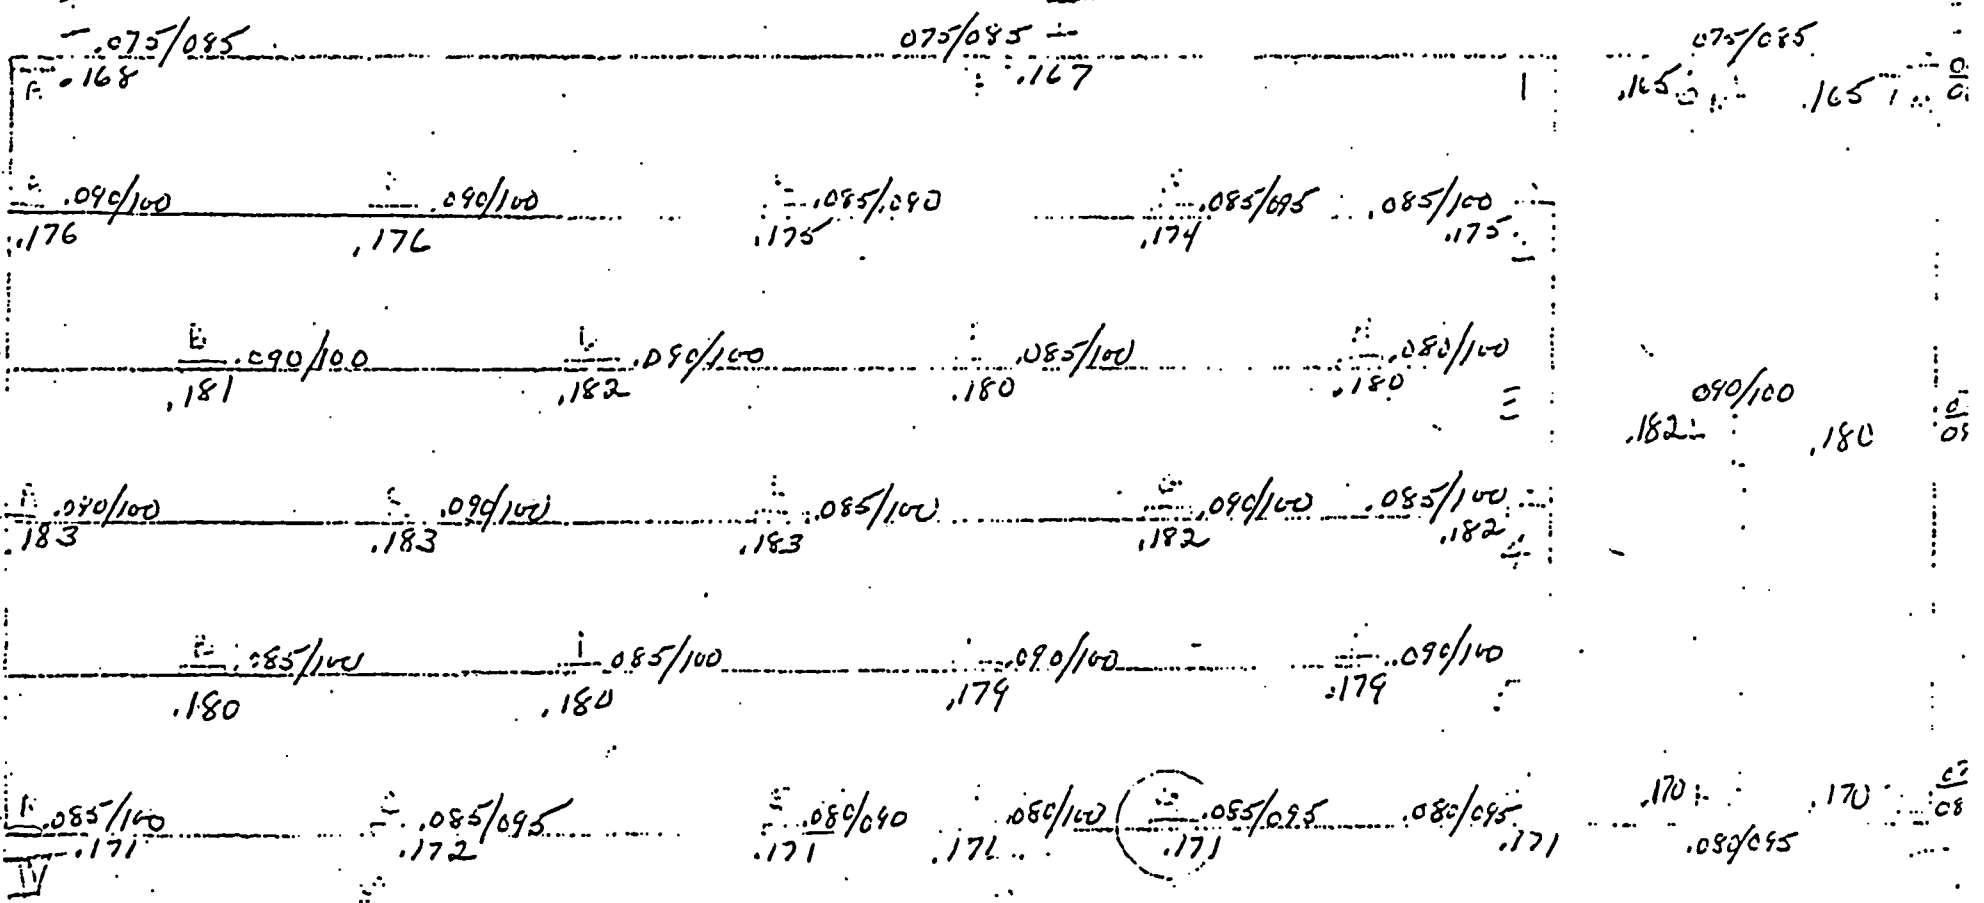 .075/085 075/085 075/085
.168 .167 .165 .165
.090/100 .090/100 .085/.090 .085/095 .085/100
.176 .176 .175 .174 .175
.090/100 .090/100 .085/100 .080/100
.181 .182 .180 .180
090/100
.182 .180
.090/100 .090/100 .085/100 .090/100 .085/100
.183 .183 .183 .182 .182
.085/100 085/100 .090/100 .090/100
.180 .180 .179 .179
.085/100 .085/095 .080/090 .080/100 .085/095 .080/095 .170 .170
.171 .172 .171 .171 .171 .171 .080/095
IV